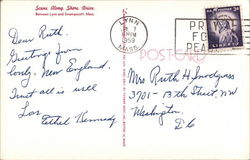 Scene Along Shore Drive
Between Lynn and Swampscott, Mass.
LYNN
PM
1959
MASS.
PRAY
FOR
PEACE
LIBERTY
POSTCARD
Dear Ruth,
Greetings from
lovely New England.
Trust all is well
Love
Ethel Kennedy
Mrs Ruth H Snodgrass
3701-13th Street, NW
Washington,
DC